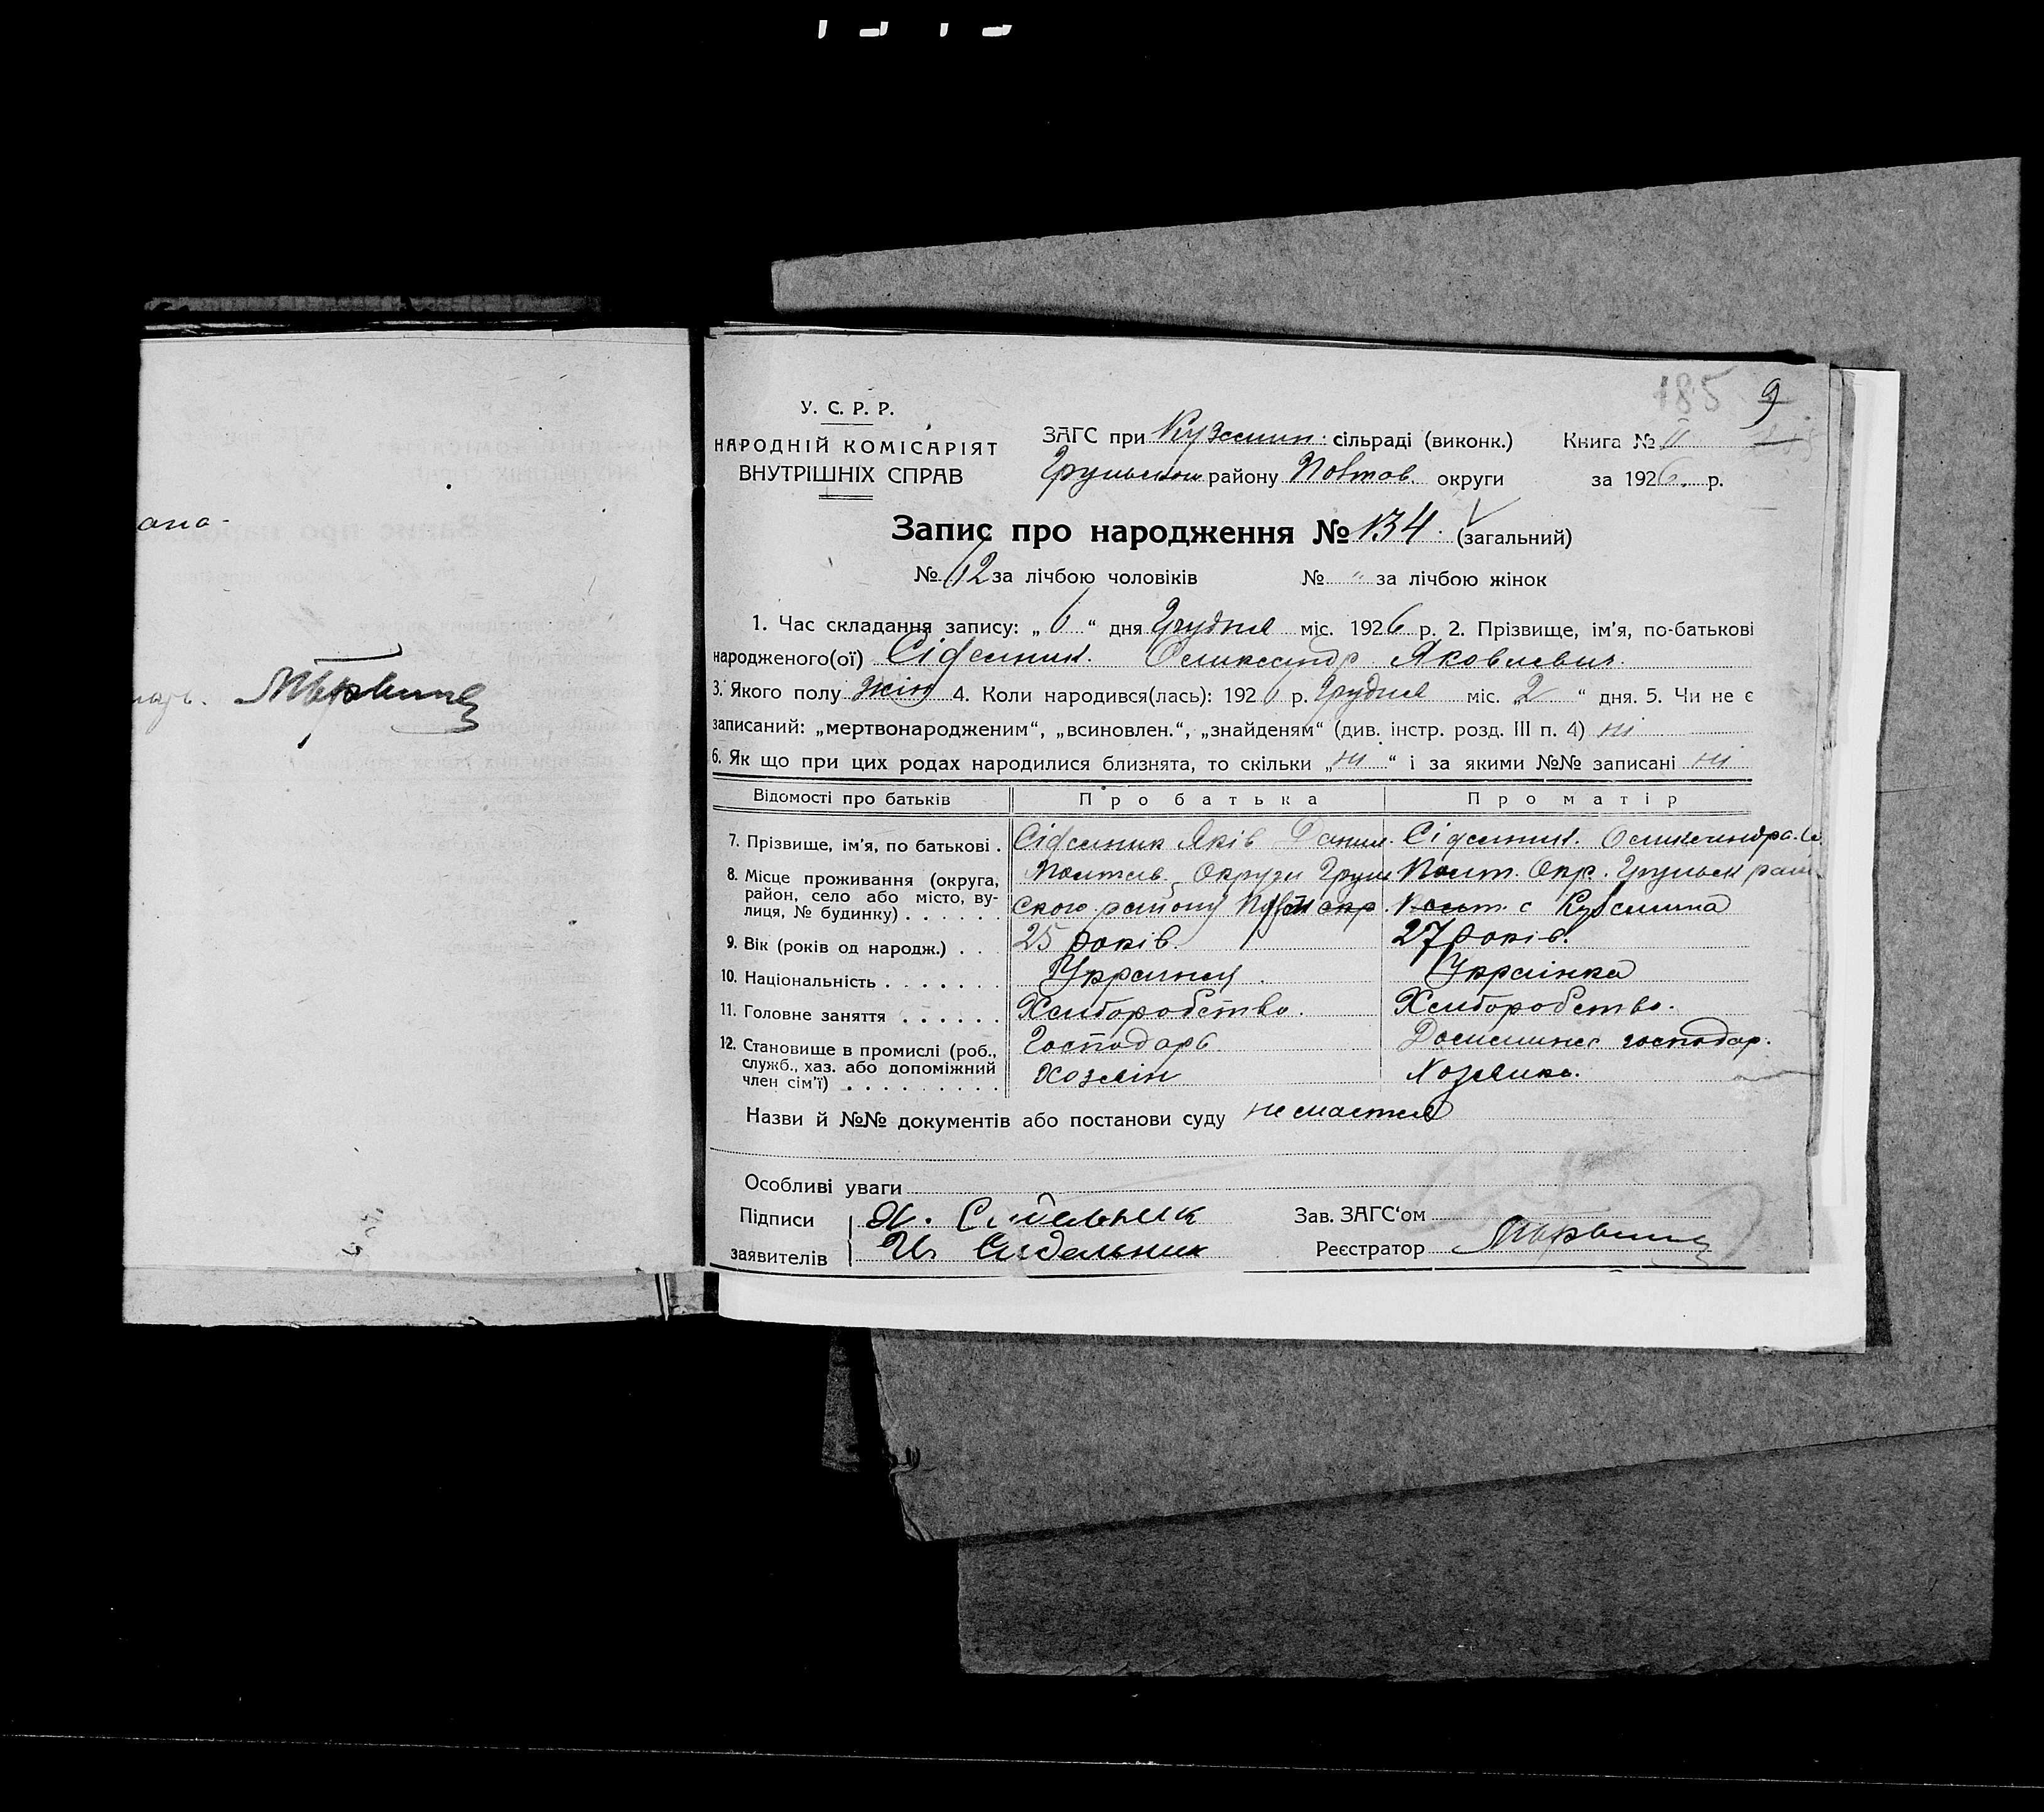 185 9
У. С. Р. Р.
НАРОДНІЙ КОМІСАРІЯТ
ВНУТРІШНІХ СПРАВ
ЗАГС при Кузьмин. сільраді (виконк.) Книга № II
району Полтав. округи за 1926. р.
Запис про народження № 134. (загальний)
№ 62 за лічбою чоловіків № " за лічбою жінок
1. Час складання запису: „ 6 “ дня Грудня міс. 1926 р. 2. Прізвище, ім'я, по-батькові
народженого(ої) Сідельник. Олександр Яковлевич.
3. Якого полу жін 4. Коли народився(лась): 1926 р. Грудня міс. „2 “ дня. 5. Чи не є
записаний: „мертвонародженим“, „всиновлен.“, „знайденям“ (див. інстр. розд. III п. 4) ні
6. Як що при цих родах народилися близнята, то скільки „ні “ і за якими №№ записані ні
Відомості про батьків Про батька Про матір
7. Прізвище, ім'я, по батькові . Сідельник Яків Данил. Сідельник. Олександра.
8. Місце проживання (округа, район, село або місто, вулиця, № будинку) . . . . . . Полтав. Округи
ского району Полт. Окр.
с Кузьмина
9. Вік (років од народж.) . . . 25 років. 27 років.
10. Національність . . . . . . . Українец. Українка
11. Головне заняття . . . . . . Хліборобство. Хліборобство.
12. Становище в промислі (роб., служб., хаз. або допоміжний член сім'ї) . . . . . . . . . Господарь Домашнє господар.
хозяїн Хозяйка.
Назви й №№ документів або постанови суду не мается
Особливі уваги
Підписи Я. Сидельник Зав. ЗАГС‘ом
заявителів Сидельник Реєстратор